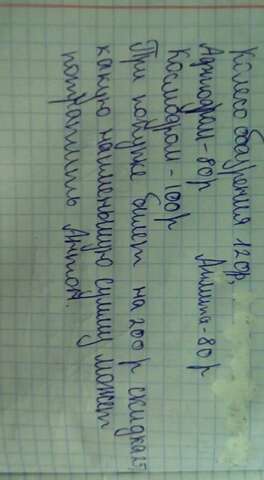 Колесо обозрения 120р,
Аэродром - 80р Анаша - 80р
Космодром - 100р
При покупке билет на 200 р скидка
какую наименьшую сумму может
потратить Антон.